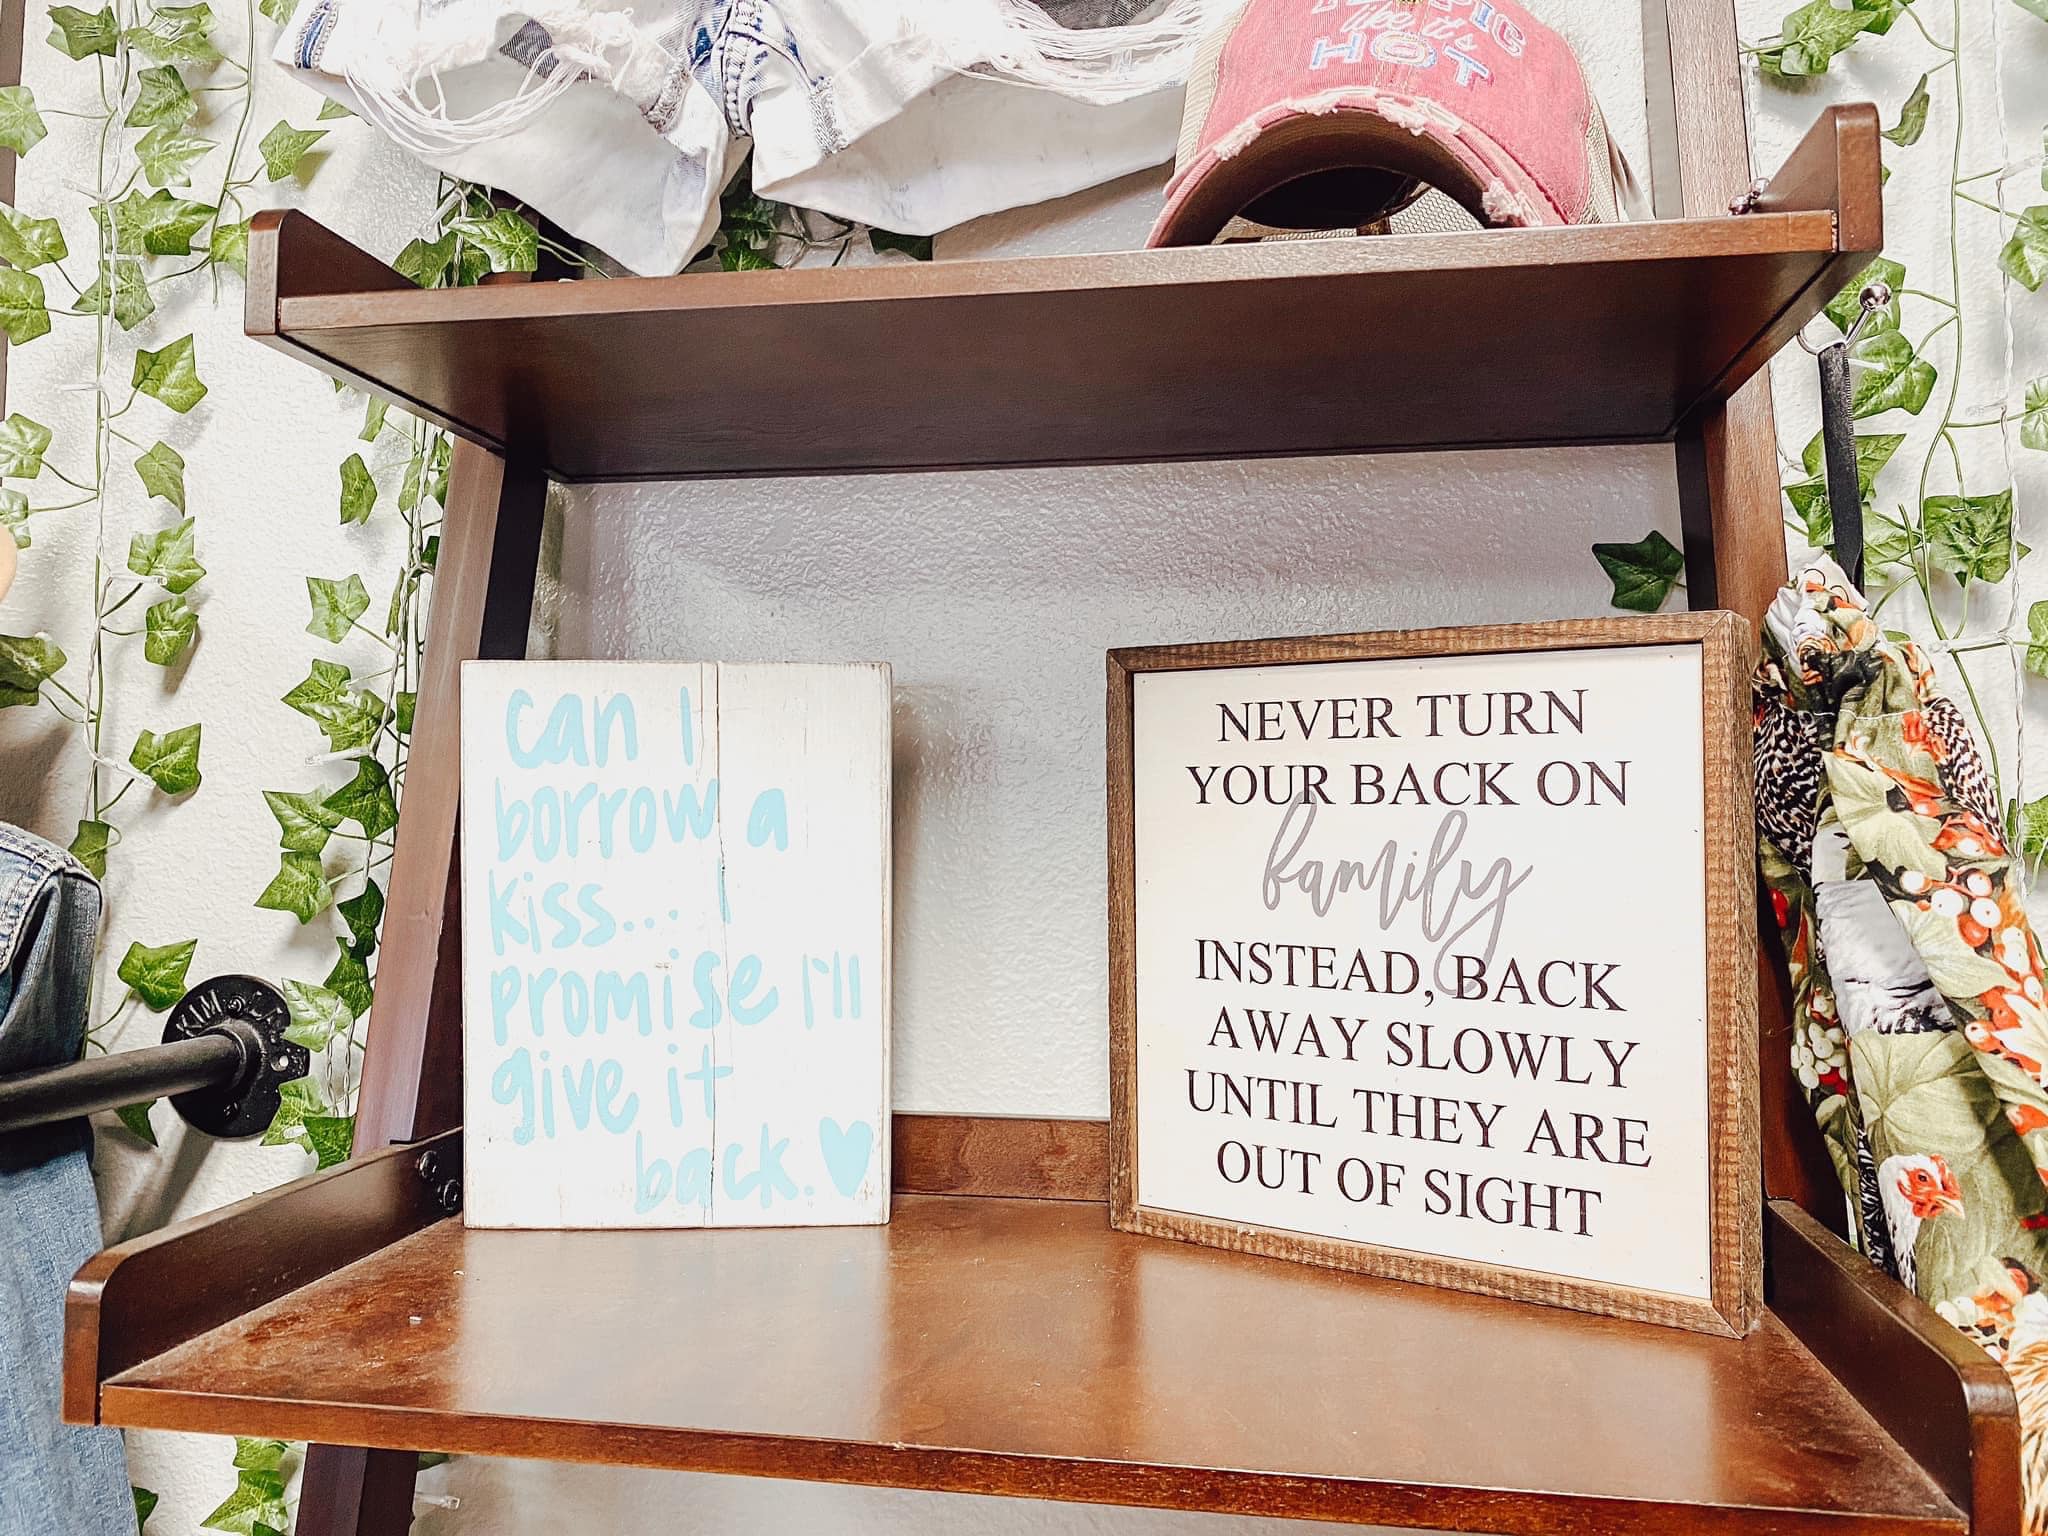 like it's
HOT
can I
borrow a
kiss... I
promise I'll
give it
back.
NEVER TURN
YOUR BACK ON
family
INSTEAD, BACK
AWAY SLOWLY
UNTIL THEY ARE
OUT OF SIGHT